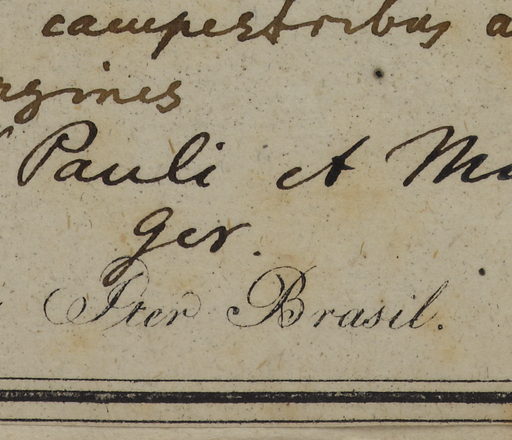 campestribus a
rgines
Pauli et M
Ger.
Iter Brasil.